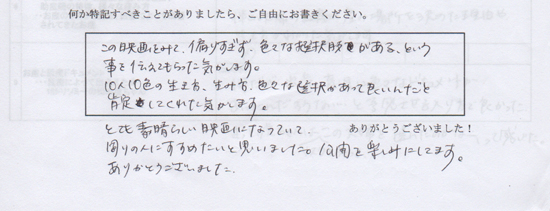 何か特記すべきことがありましたら、ご自由にお書きください。
この映画をみて、偏りすぎず、色々な選択肢がある、という
事を伝えてもらった気がします。
10人10色の生き方、生み方、色々な選択があって良いんだと
肯定してくれた気がします。
とても素晴らしい映画になっていて、
ありがとうございました！
周りの人にすすめたいと思いました。公開を楽しみにしてます。
ありがとうございました。